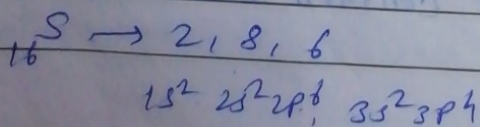 ₁₆S → 2, 8, 6
1s² 2s² 2p⁶, 3s² 3p⁴